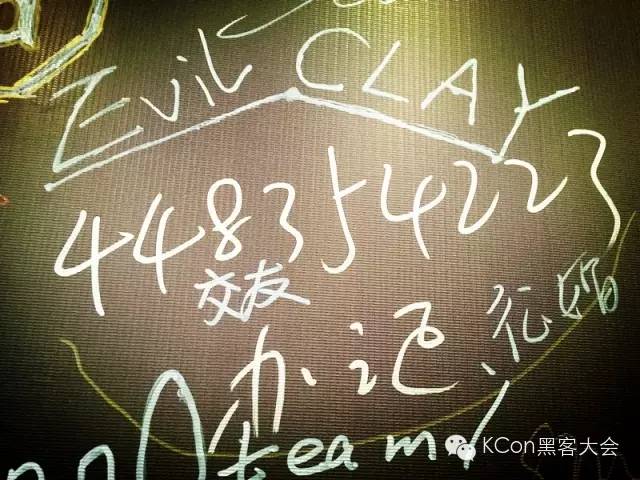 EVIL CLAY
448354223
交友
办记 婚
team
KCon黑客大会